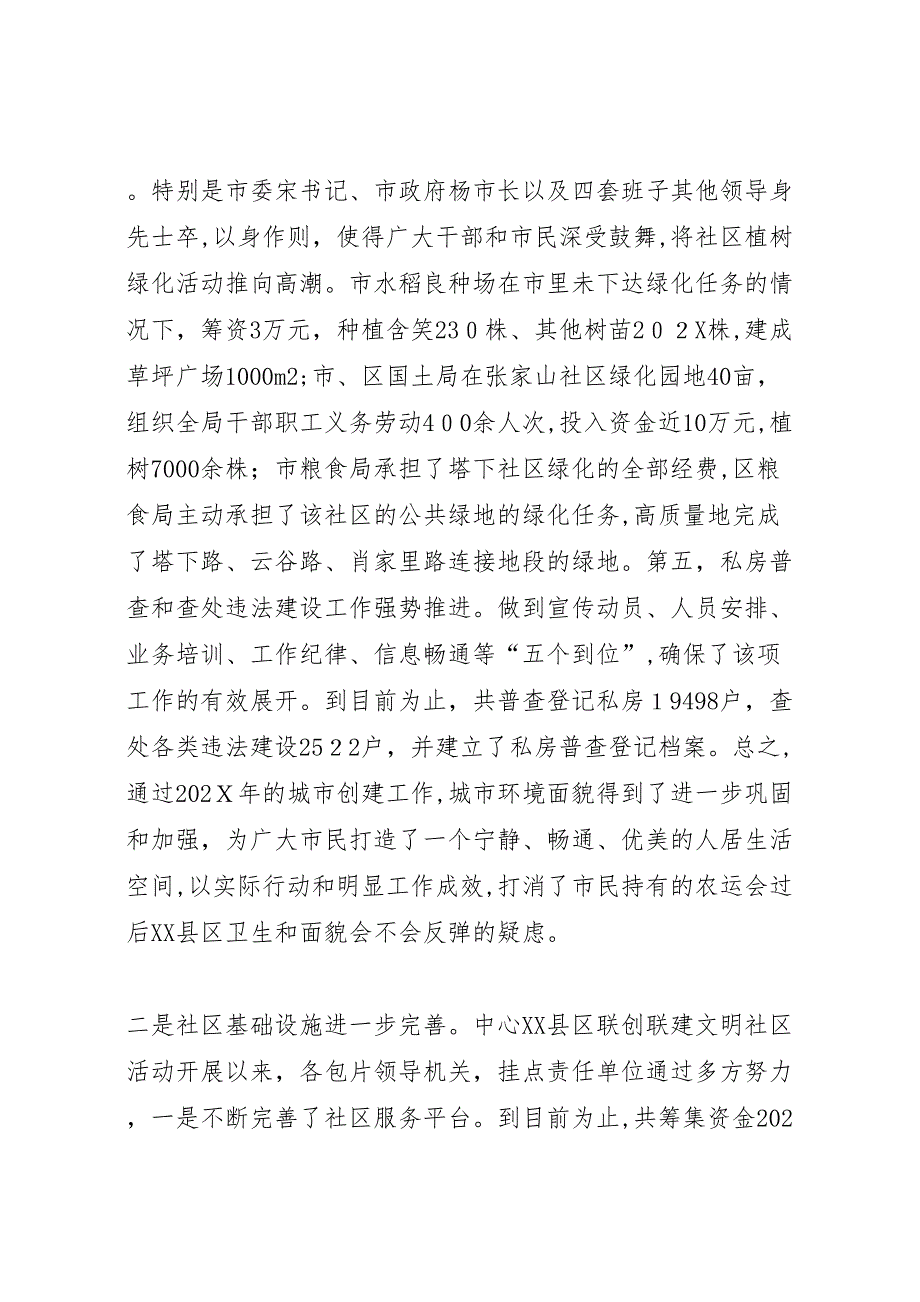 。特别是市委宋书记、市政府杨市长以及四套班子其他领导身
先士卒,以身作则，使得广大干部和市民深受鼓舞,将社区植树
绿化活动推向高潮。市水稻良种场在市里未下达绿化任务的情
况下，筹资3万元，种植含笑230株、其他树苗202X株,建成
草坪广场1000m2;市、区国土局在张家山社区绿化园地40亩，
组织全局干部职工义务劳动400余人次,投入资金近10万元,植
树7000余株；市粮食局承担了塔下社区绿化的全部经费,区粮
食局主动承担了该社区的公共绿地的绿化任务,高质量地完成
了塔下路、云谷路、肖家里路连接地段的绿地。第五，私房普
查和查处违法建设工作强势推进。做到宣传动员、人员安排、
业务培训、工作纪律、信息畅通等“五个到位”,确保了该项
工作的有效展开。到目前为止，共普查登记私房19498户，查
处各类违法建设2522户，并建立了私房普查登记档案。总之,
通过202X年的城市创建工作,城市环境面貌得到了进一步巩固
和加强，为广大市民打造了一个宁静、畅通、优美的人居生活
空间,以实际行动和明显工作成效,打消了市民持有的农运会过
后XX县区卫生和面貌会不会反弹的疑虑。
二是社区基础设施进一步完善。中心XX县区联创联建文明社区
活动开展以来，各包片领导机关，挂点责任单位通过多方努力
，一是不断完善了社区服务平台。到目前为止,共筹集资金202